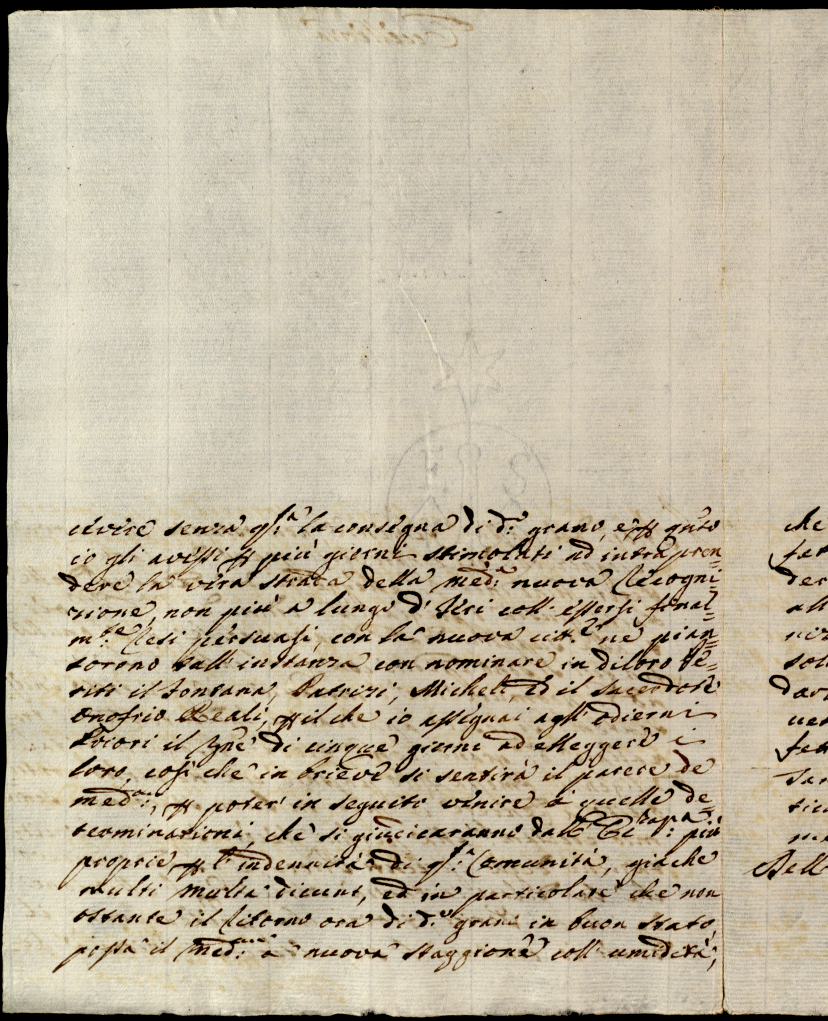 civire senza qs.ᵃ la consegna di d.º grano, e
io gli avessi più giorni stimolati ad intrapren=
dere la vera strada della med.ª nuova Recogni=
zione, non più a lungo d' Ieri coll' essersi final=
m.te Resi persuasi, con la nuova ne pian=
torono all' instanza con nominare in di loro Pe=
riti il Fontana, Patrizi, Micheli, ed il Sacerdote
Onofrio Reali, il che io assegnai agl' odierni
Priori il di cinque giorni ad elleggere i
loro, così che in brieve si sentirà il parere de
med.mi, poter in seguito venire a quelle de=
terminazioni che si giudicaranno dall' più
proprie l'indennità di qs.ᵃ Comunità, giache
multi multa dicunt, ed in particolare che non
ostante il Ritorno ora di d.º grano in buon stato,
possa il med.mo a nuova staggione coll' umidità,
che
all
sol